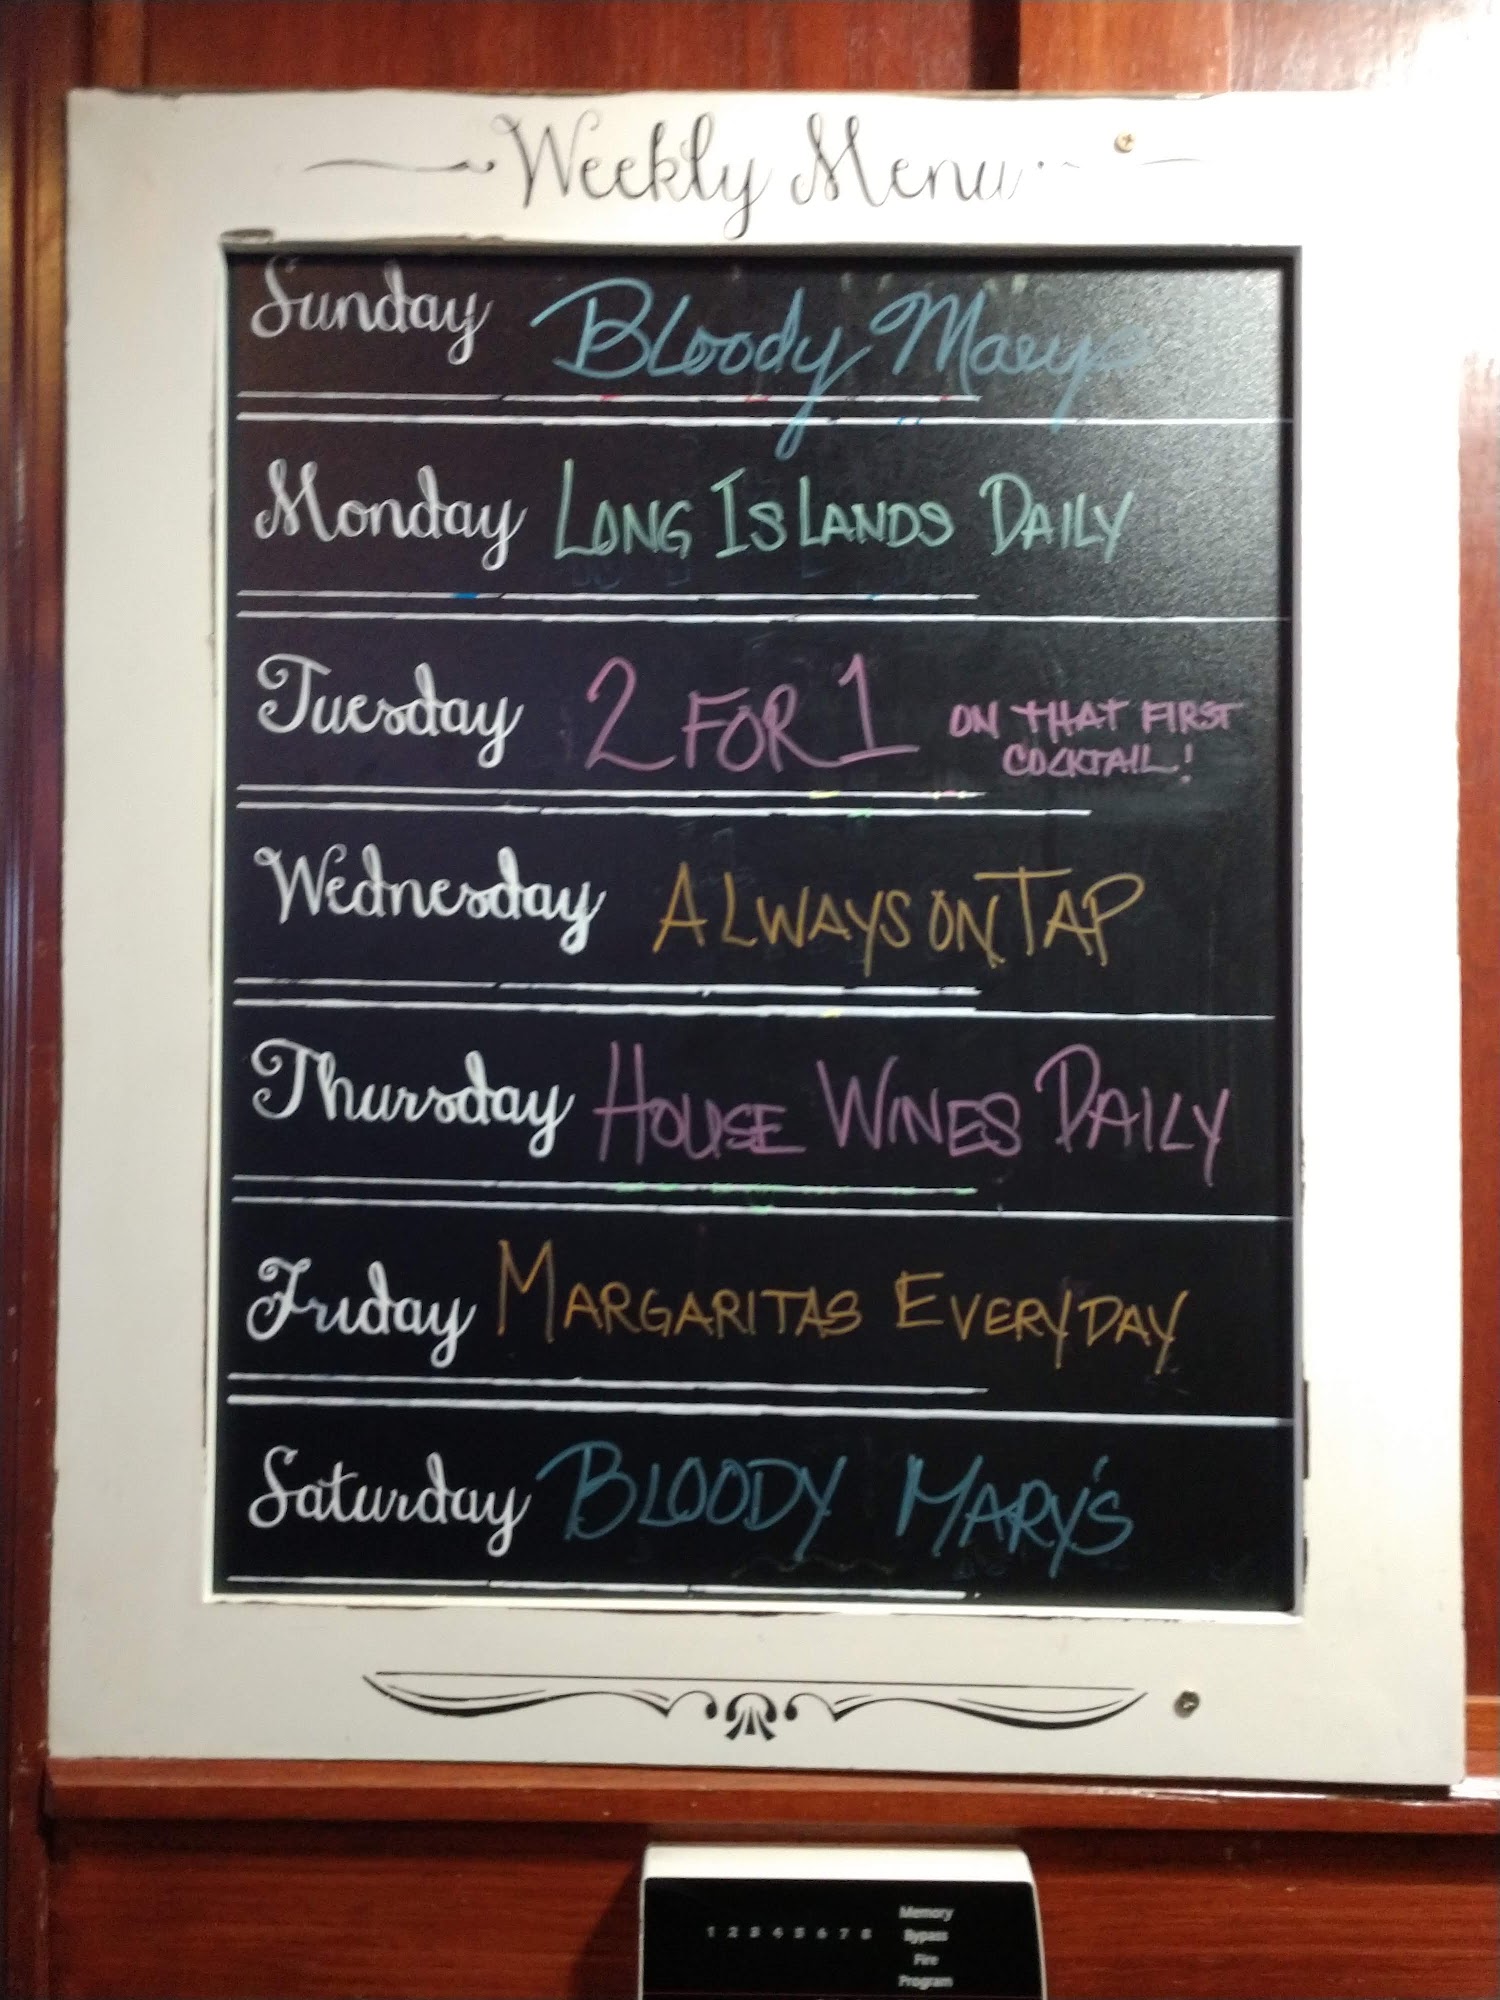 Weekly Menu
Sunday Bloody Marys
Monday LONG ISLANDS DAILY
Tuesday 2 FOR 1 ON THAT FIRST
COCKTAIL!
Wednesday ALWAYS ON TAP
Thursday HOUSE WINES DAILY
Friday MARGARITAS EVERYDAY
Saturday BLOODY MARY'S
Memory
1 2 3 4 5 6 7 8 Bypass
Fire
Program